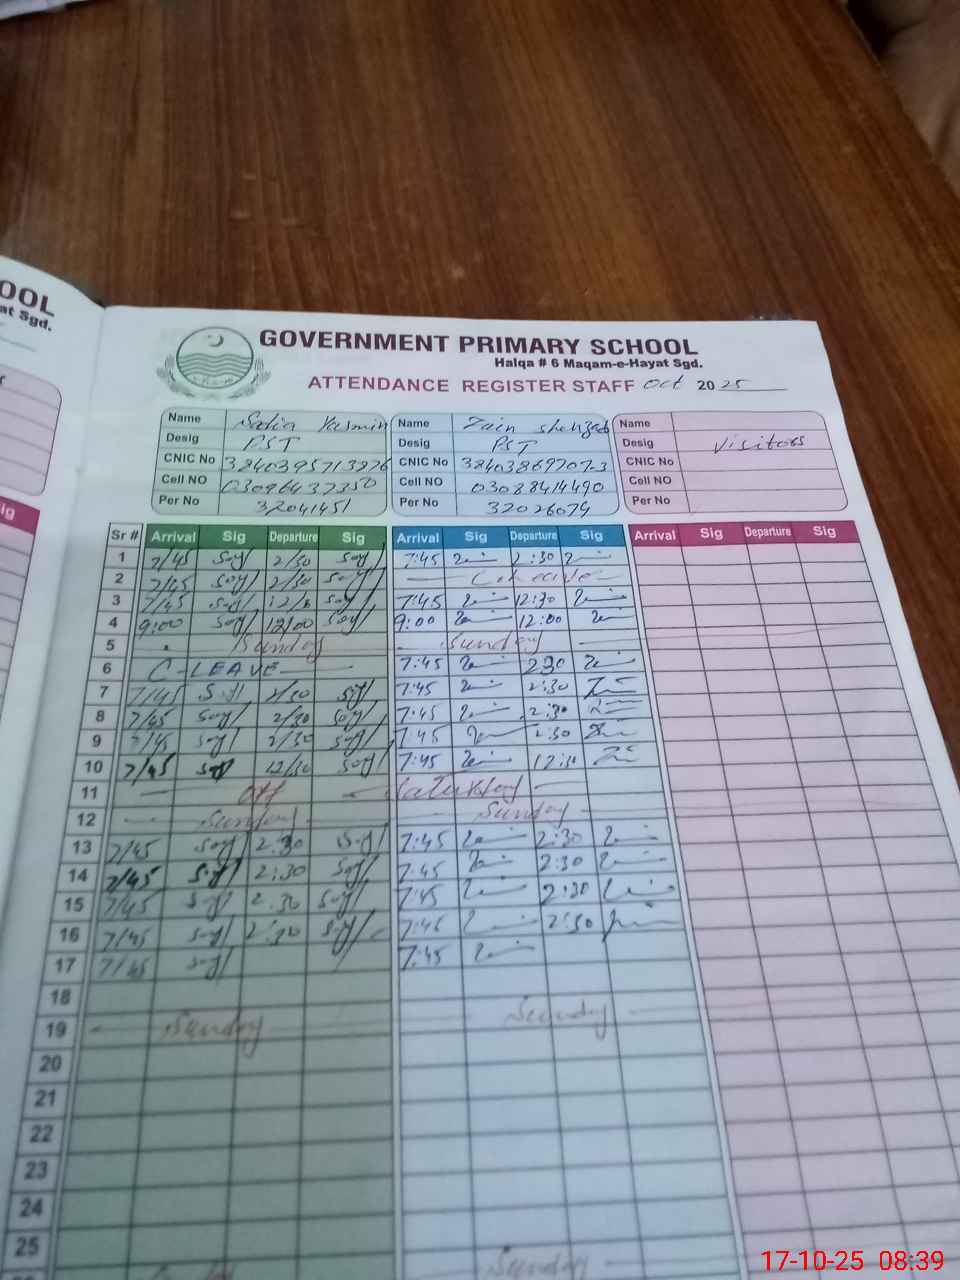 OOL
at Sgd.
GOVERNMENT PRIMARY SCHOOL
Halqa # 6 Maqam-e-Hayat Sgd.
ATTENDANCE REGISTER STAFF Oct 2025
Name Sadia Yasmin Name Zain shehzad Name
Desig PST Desig PST Desig Visitors
CNIC No CNIC No 38403869707-3 CNIC No
Cell NO 03096437350 Cell NO 03088414490 Cell NO
Per No 32041451 Per No 32026079 Per No
ig Sr # Arrival Sig Departure Sig Arrival Sig Departure Sig Arrival Sig Departure Sig
1 7/45 2/30 7:45 2:30
2 7/45 2/30
3 7/45 7:45 12:30
4 9:00 12/00 9:00 12:00
5 Sunday Sunday
6 C-LEAVE 7:45 2:30
7 7/45 2/30 7:45 2:30
8 7/45 2/30 7:45 2:30
9 7/45 2/30 7:45 2:30
10 7/45 12/30 7:45 12:30
11 off Saturday
12 Sunday Sunday
13 7/45 2:30 7:45 2:30
14 7/45 2:30 7:45 2:30
15 7/45 2:30 7:45 2:30
16 7/45 2:30 7:45 2:30
17 7/45 7:45
18
19 Sunday Sunday
20
21
22
23
24
25
Sunday Sunday
17-10-25 08:39